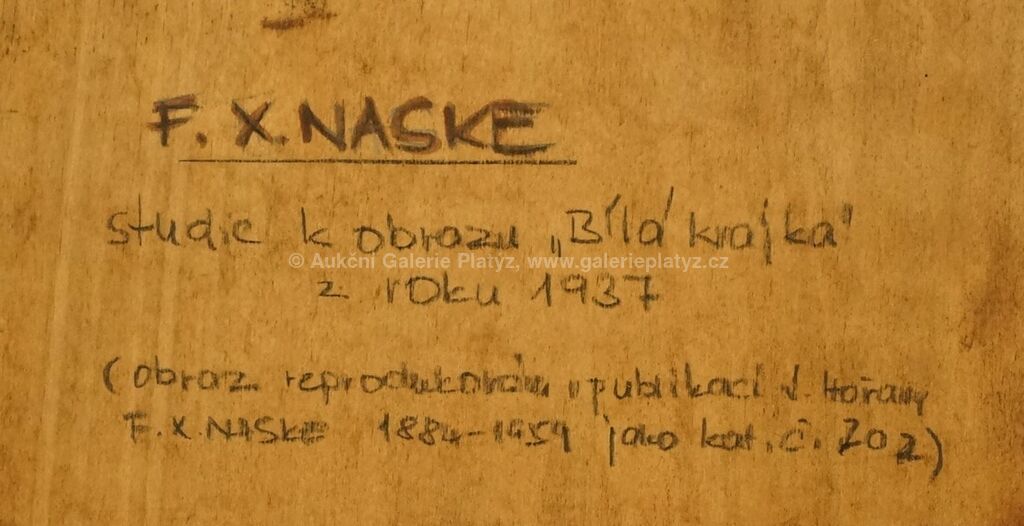 F. X. NASKE
studie k obrazu „Bílá krajka"
© Aukční Galerie Platýz, www.galerieplatyz.cz
z roku 1937
(obraz reprodukován publikací
F. X. NASKE 1884-1959 jako kat. č. 202)